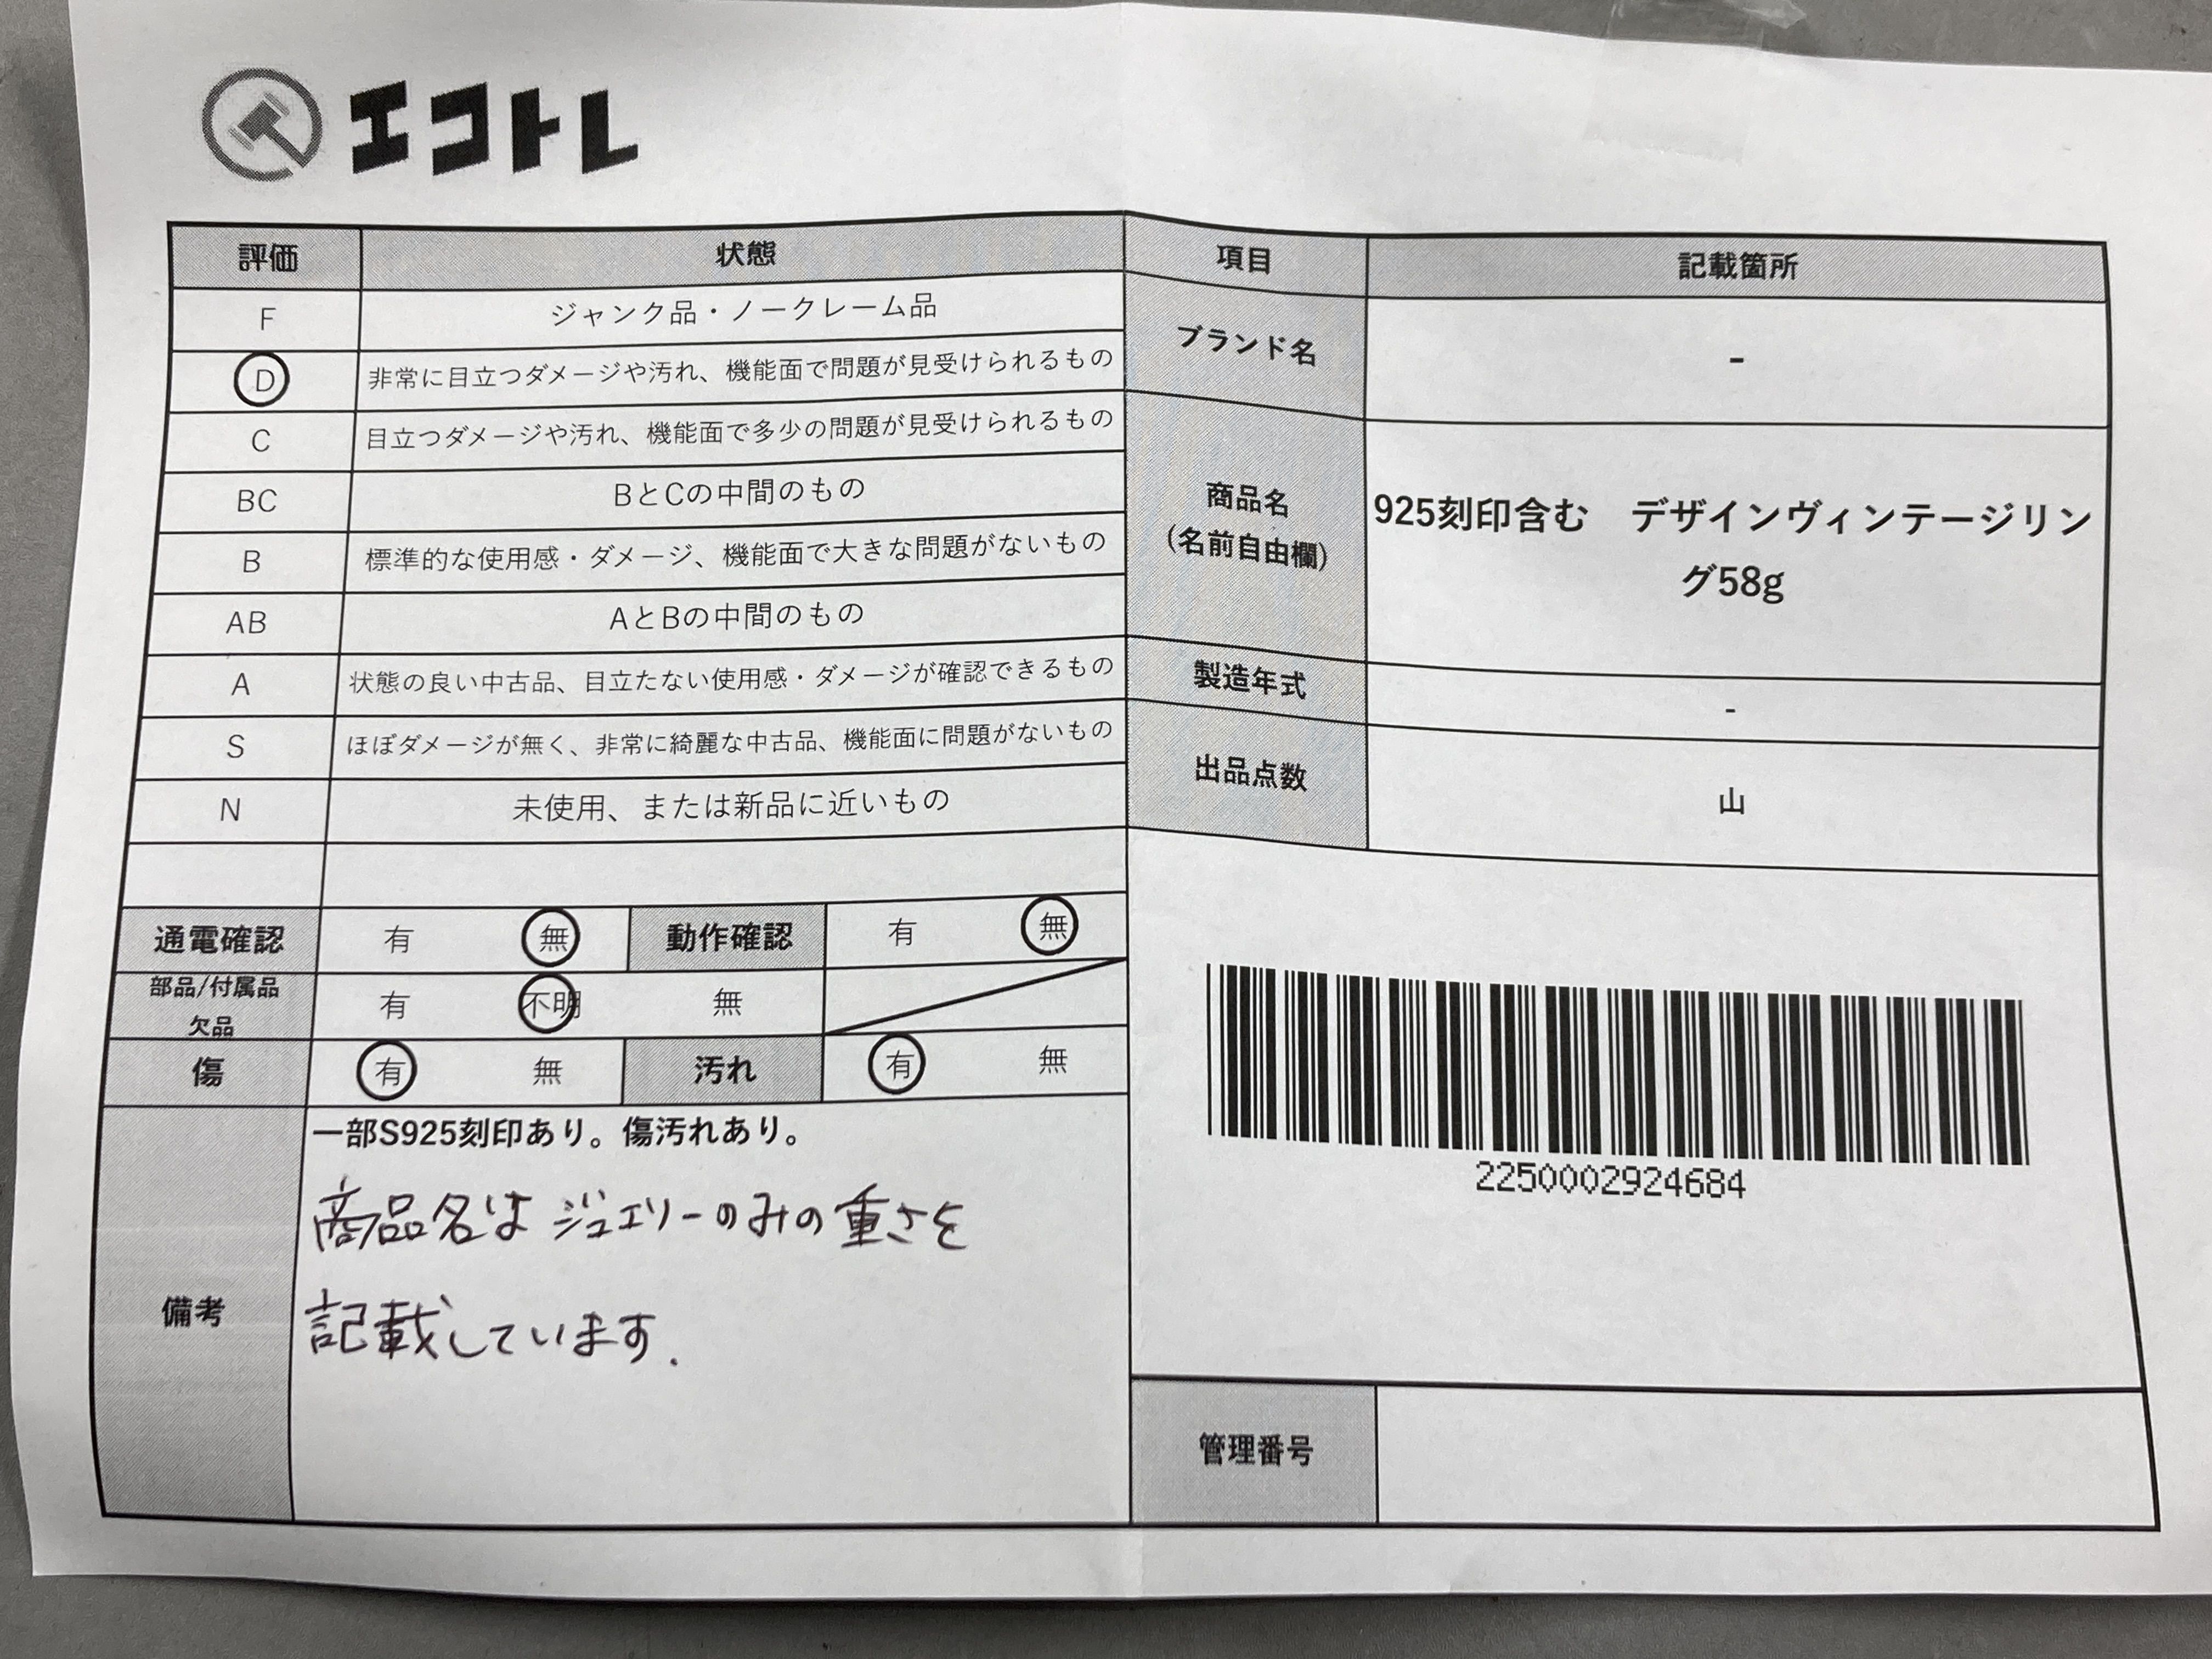 エコトレ
評価 状態
F ジャンク品・ノークレーム品
D 非常に目立つダメージや汚れ、機能面で問題が見受けられるもの
C 目立つダメージや汚れ、機能面で多少の問題が見受けられるもの
BC BとCの中間のもの
B 標準的な使用感・ダメージ、機能面で大きな問題がないもの
AB AとBの中間のもの
A 状態の良い中古品、目立たない使用感・ダメージが確認できるもの
S ほぼダメージが無く、非常に綺麗な中古品、機能面に問題がないもの
N 未使用、または新品に近いもの
通電確認 有 無 動作確認 有 無
部品/付属品
欠品 有 不明 無
傷 有 無 汚れ 有 無
備考
一部S925刻印あり。傷汚れあり。
商品名はジュエリーのみの重さを
記載しています.
項目 記載箇所
ブランド名 -
商品名
(名前自由欄)
925刻印含む　デザインヴィンテージリン
グ58g
製造年式 -
出品点数 山
2250002924684
管理番号